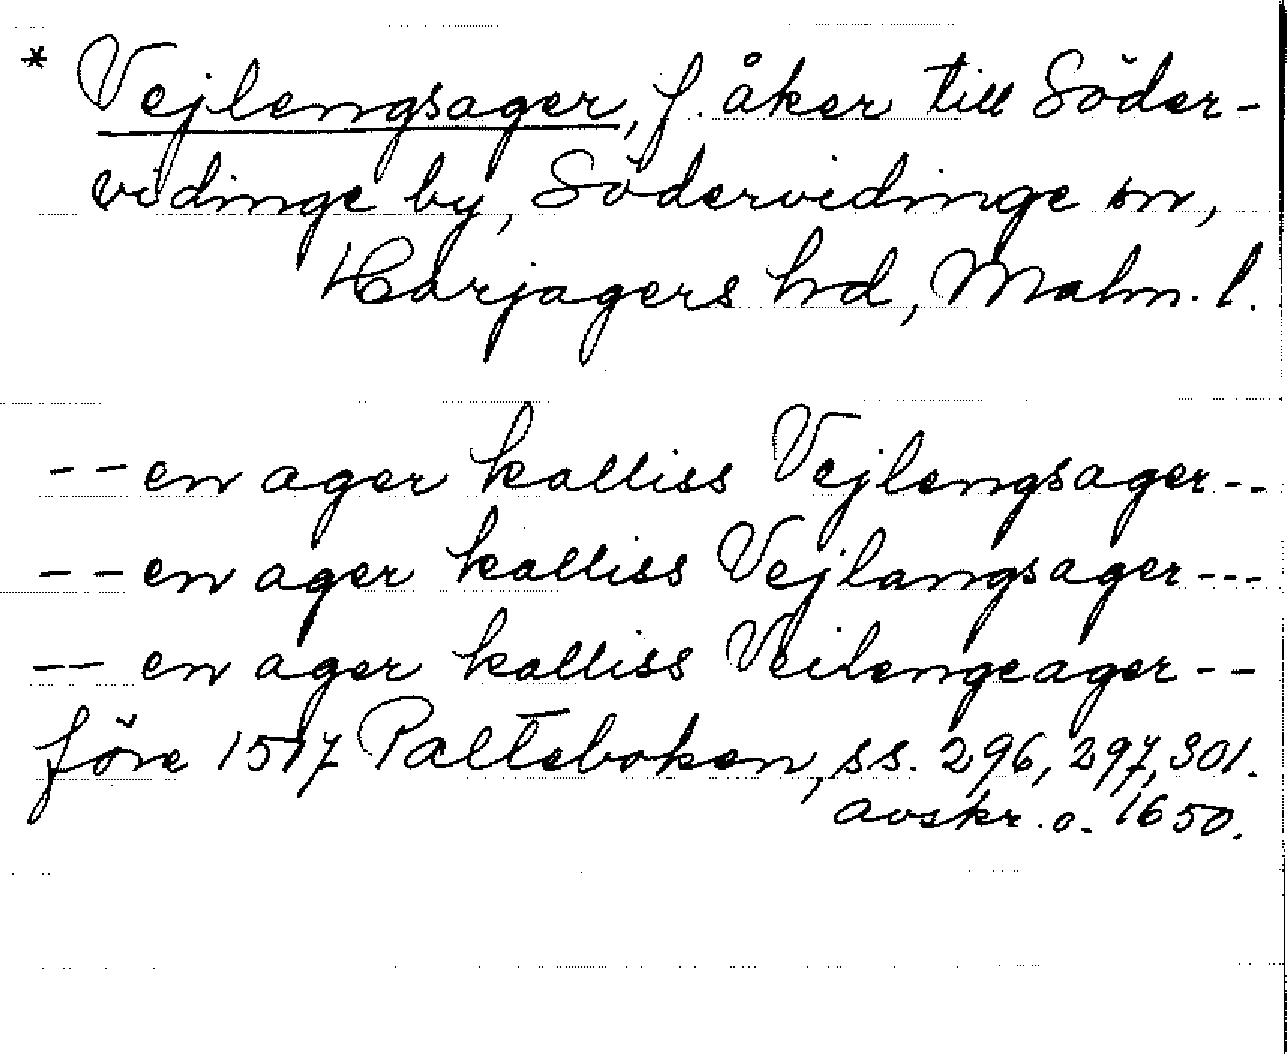 * Vejlengsager, f. åker till Söder-
vidinge by, Södervidinge sn,
Harjagers hd, Malm. l.
-- en ager kalliss Vejlengsager--
-- en ager kalliss Vejlangsager---
-- en ager kalliss Veilengeager--
före 1517 Palteboken, ss. 296, 297, 301.
avskr. o. 1650.